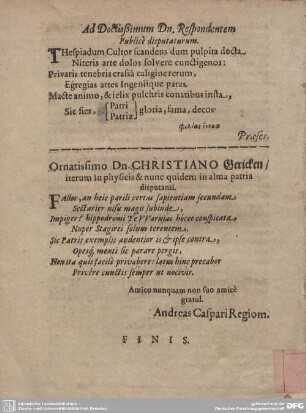 Ad Doctissimum Dn. Respondentem
Publicè disputaturum.
THespiadum Cultor scandens dum pulpita docta
Niteris arte dolos solvere cunctigenos:
Privatis tenebris crassâ caligine rerum,
Egregias artes Ingeniique paras.
Macte animo, & felix pulchris conatibus insta,
Sic fies, {Patri
Patriæ} gloria, fama, decus.
Præses.
Ornatissimo Dn. CHRISTIANO Gericken/
iterum in physicis & nunc quidem in alma patria
disputanti.
Fallor, an heic parili certas sapientiam secundam
Sectarier nisu magis subinde,
Impiger? hippodromi Te VVarnias hicce conspicata
Nuper Stagirei solum terentem.
Sic Patris exemplis audentior is & ipse contra,
Opesq, menti sic parare pergis.
Non ita quis facilè privabere: latus hinc precabor
Prodire cunctis semper ut nocivis.
Amico nunquam non suo amicè
gratul.
Andreas Caspari Regiom.
FINIS.